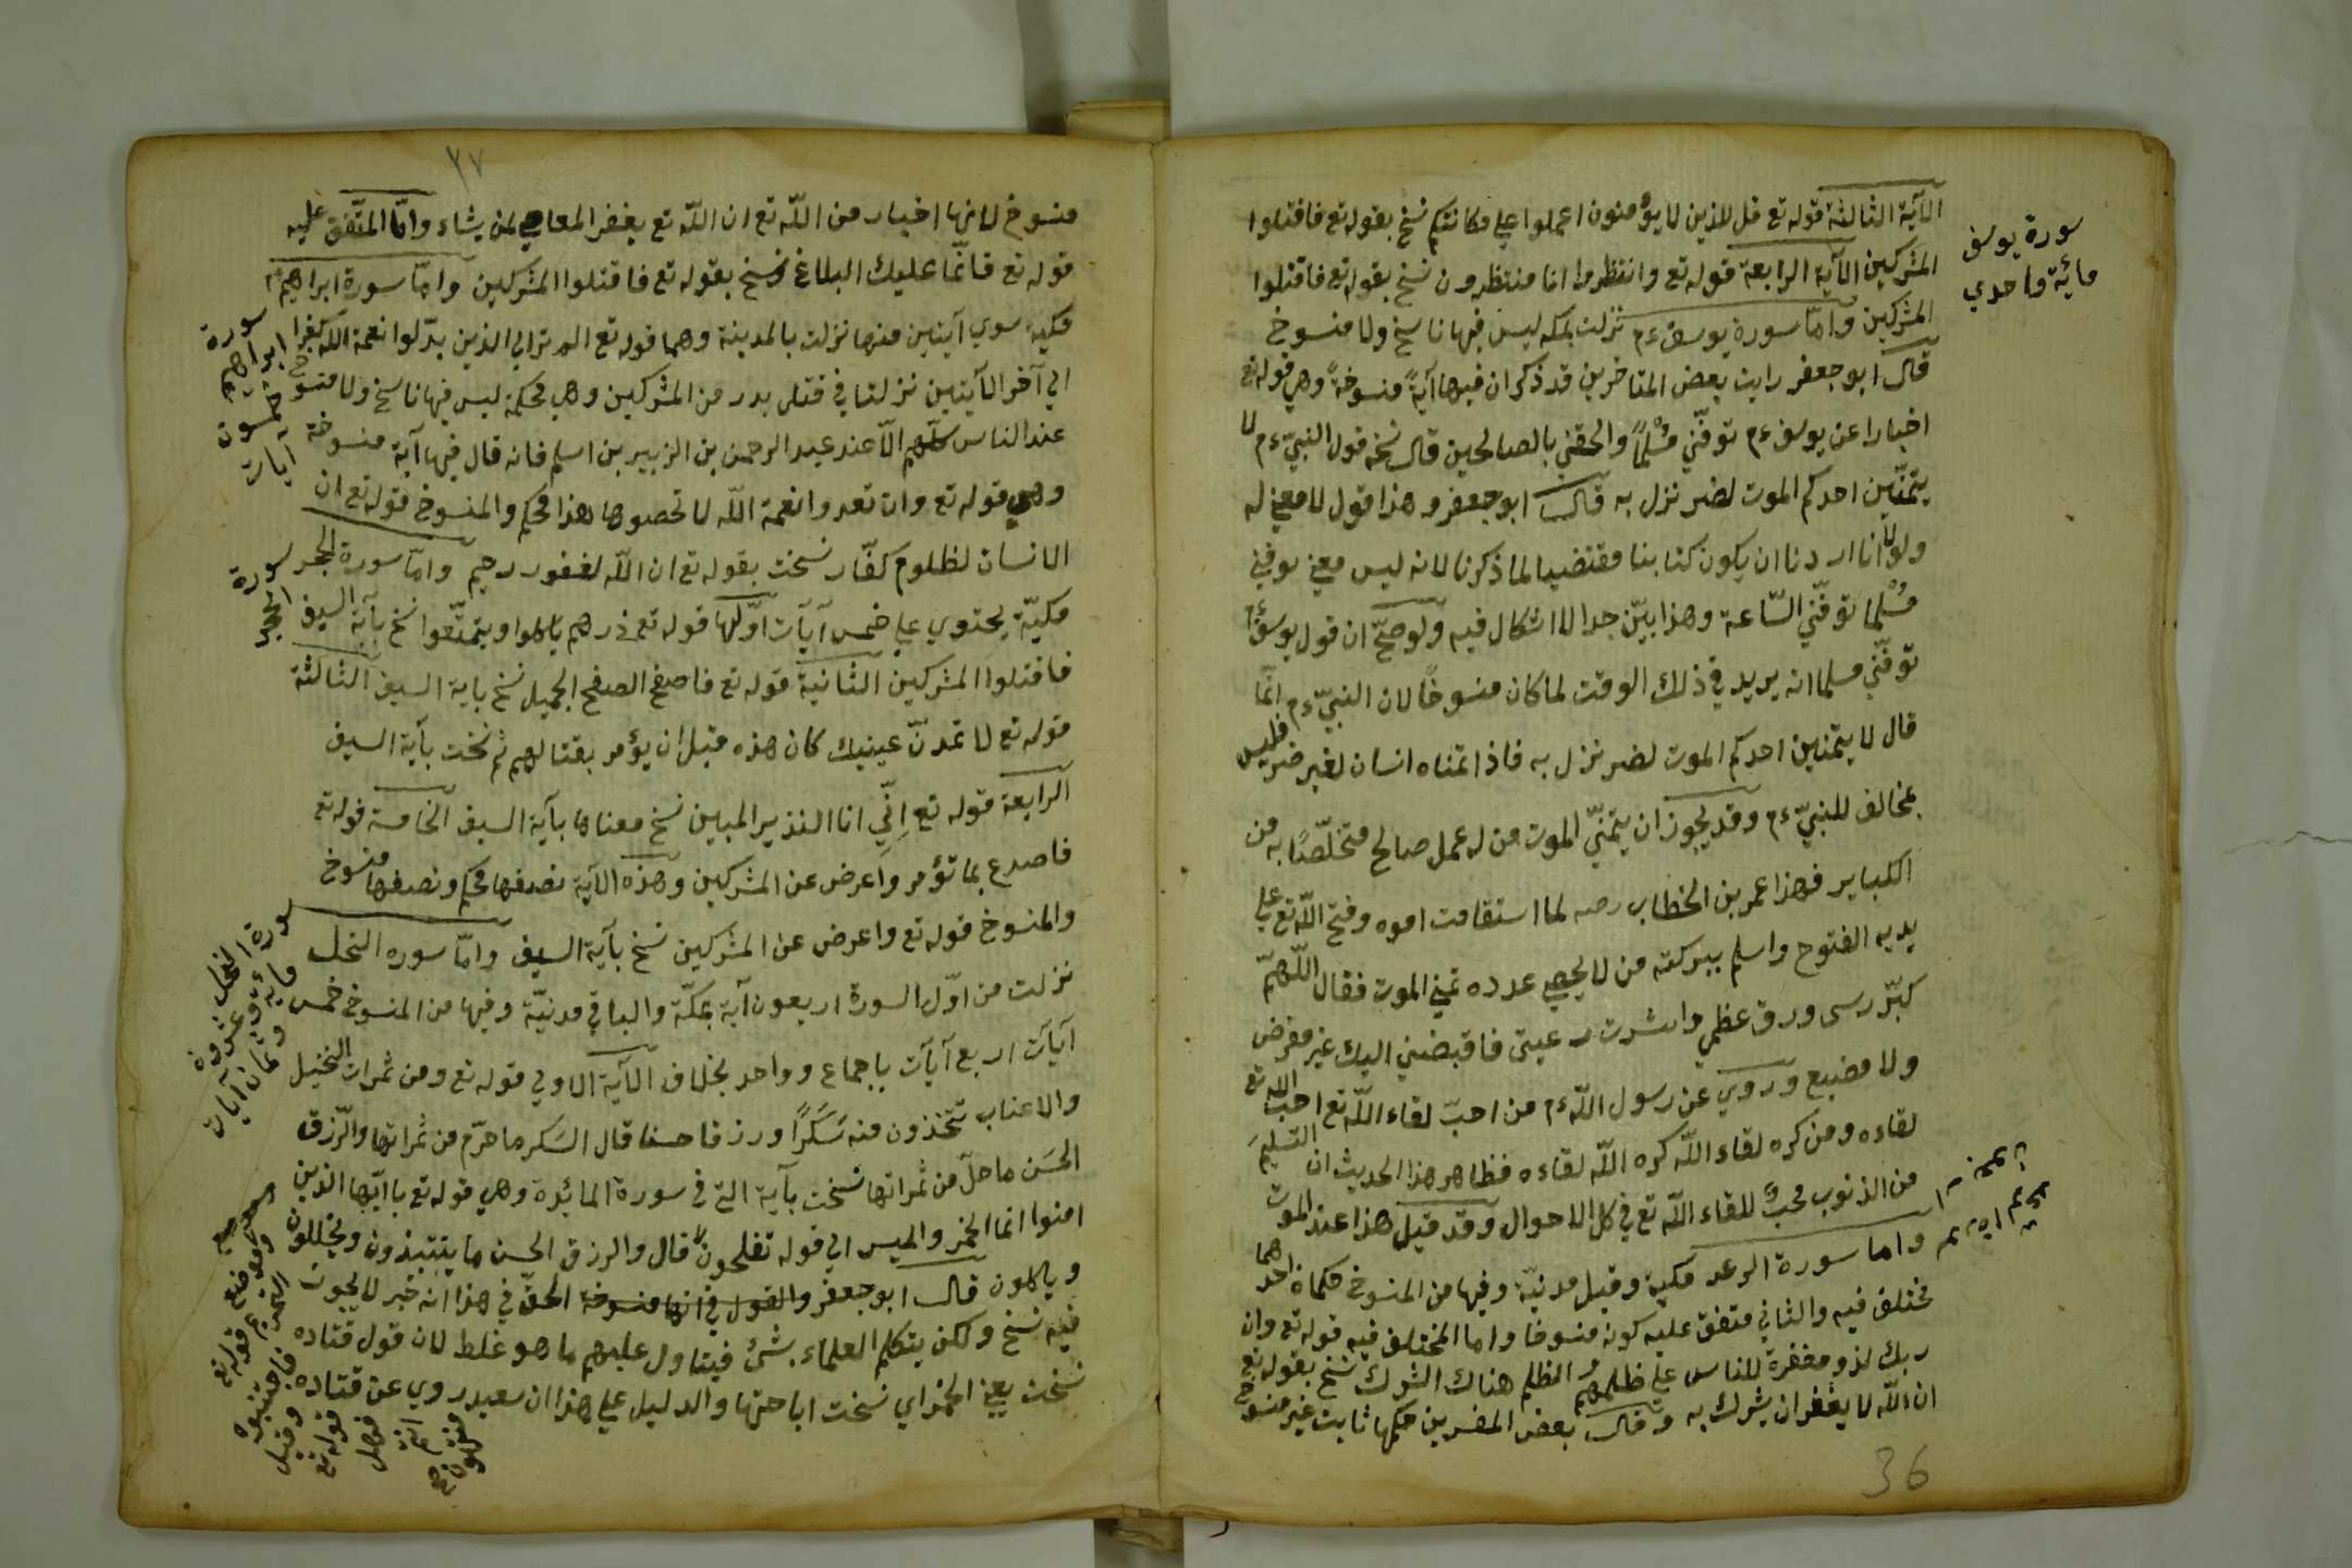 الآية الثالثة قوله تع قل للذين لا يؤمنون اعملوا على مكانتكم نسخ بقوله تع فاقتلوا
المشركين الآية الرابعة قوله تع وانتظروا انا منتظرون نسخ بقوله تع فاقتلوا
المشركين وامّا سورة يوسف ءم نزلت بمكه ليس فيها ناسخ ولا منسوخ
قال ابو جعفر رايت بعض المتاخرين قد ذكر ان فيها آيةً منسوخةً وهي قوله تع
اخبارا عن يوسف ءم توفّني مُسْلماً والحقني بالصالحين قال نسخه قول النبيّ ءم لا
يتمنّين احدكم الموت لضر نزل به قال ابو جعفر وهذا قول لا معني له
ولولا انا اردنا ان يكون كتابنا مقتضيا لما ذكرنا لانه ليس معني توفني
مُسْلما توفّني السّاعة وهذا بيّن جدا لا اشكال فيه ولو صحّ ان قول يوسف ءم
توفّني مسلما انه يريد في ذلك الوقت لما كان منسوخاً لان النبيّ ءم انّما
قال لا يتمنين احدكم الموت لضر نزل به فاذا تمناه انسان لغير ضر فليس
بمخالف للنبيّ ءم وقد يجوز ان يتمنّي الموت من له عمل صالح متخلّصًا به من
الكباير فهذا عمر بن الخطاب رضه لما استقامت اموره وفتح اللّه تع علي
يديه الفتوح واسلم ببركته من لا يحصي عدده تمني الموت فقال اللّهمّ
كبّر سى ورق عظمي وانتشرت رعيتى فاقبضني اليك غير مفرض
ولا مضيع وروي عن رسول اللّه ءم من احبّ لقاء اللّه تع احبّ اللّه تع
لقاءه ومن كره لقاء اللّه كره اللّه لقاءه فظاهر هذا الحديث ان التسليم
من الذنوب محبّ للقاء اللّه تع في كل الاحوال وقد قيل هذا عند الموت
واما سورة الرعد مكية وقيل مدنيّة وفيها من المنسوخ حكمان احدهما
مختلف فيه والثاني متفق عليه كونه منسوخا واما المختلف فيه قوله تع وان
ربك لذو مغفرة للناس علي ظلمهم والظلم هناك الشرك نسخ بقوله تع
ان اللّه لا يغفر ان يشرك به وقال بعض المفسرين حكمها ثابت غير منسوخ
سورة يوسف
مائة واحدي
36
٣٧
منسوخ لانها اخبار من اللّه تع ان اللّه تع يغفر المعاصي لمن يشاء وامّا المتّفق عليه
قوله تع فانّما عليك البلاغ نسخ بقوله تع فاقتلوا المشركين وامّا سورة ابراهيم ءم
مكية سوي آيتين منها نزلت بالمدينة وهما قوله تع الم تر الي الذين بدّلوا نعمة اللّه كفرا
الي آخر الآيتين نزلتا في قتلى بدر من المشركين وهي محكمة ليس فيها ناسخ ولا منسوخ
عند الناس كلّهم الّا عند عبد الرحمن بن الزبير بن اسلم فانه قال فيها آية منسوخة
وهي قوله تع وان تعدوا نعمة اللّه لا تحصوها هذا محكم والمنسوخ قوله تع ان
الانسان لظلوم كفّار نسخت بقوله تع ان اللّه لغفور رحيم وامّا سورة الحجر
مكيّة يحتوي علي خمس آيات اوّلها قوله تع ذرهم ياكلوا ويتمتّعوا نسخ بآية السيف
فاقتلوا المشركين الثانية قوله تع فاصفح الصفح الجميل نسخ باية السيف الثالثة
قوله تع لا تمدنّ عينيك كان هذه قبل ان يؤمر بقتالهم ثم نسخت بآية السيف
الرابعة قوله تع اِنّي انا النذير المبين نسخ معناها بآية السيف الخامسة قوله تع
فاصدع بما تؤمر واعرض عن المشركين وهذه الآية نصفها محكم ونصفها منسوخ
والمنسوخ قوله تع واعرض عن المشركين نسخ بآية السيف وامّا سوره النحل
نزلت من اوّل السورة اربعون آية بمكّة والباقي مدنيّة وفيها من المنسوخ خمس
آيات اربع آيات باجماع وواحد بخلاف الآية الاولي قوله تع ومن ثمرات النخيل
والاعناب تتّخذون منه سَكَرًا ورزقا حسنا قال السَكر ما حرّم من ثمراتها والرّزق
الحسَن ما حلّ من ثمراتها نسخت بآية التي في سورة المائدة وهي قوله تع يا ايّها الذين
امنوا انما الخمر والميسر الي قوله تفلحون قال والرزق الحسن ما ينتبذون ويخللون
وياكلون قال ابو جعفر والقول في انها منسوخة الحقّ في هذا انه خبر لا يجوز
فيه نسخ ولكن يتكلم العلماء بشئ فيتاول عليهم ما هو غلط لان قول قتاده
نسخت يعني الخمر اي نسخت اباحتها والدليل علي هذا ان سعيد روي عن قتاده
سورة
ابراهيم
خمسون
آيات
سورة
الحجر
سورة النحل
مائة وعشرون
وثمان آيات